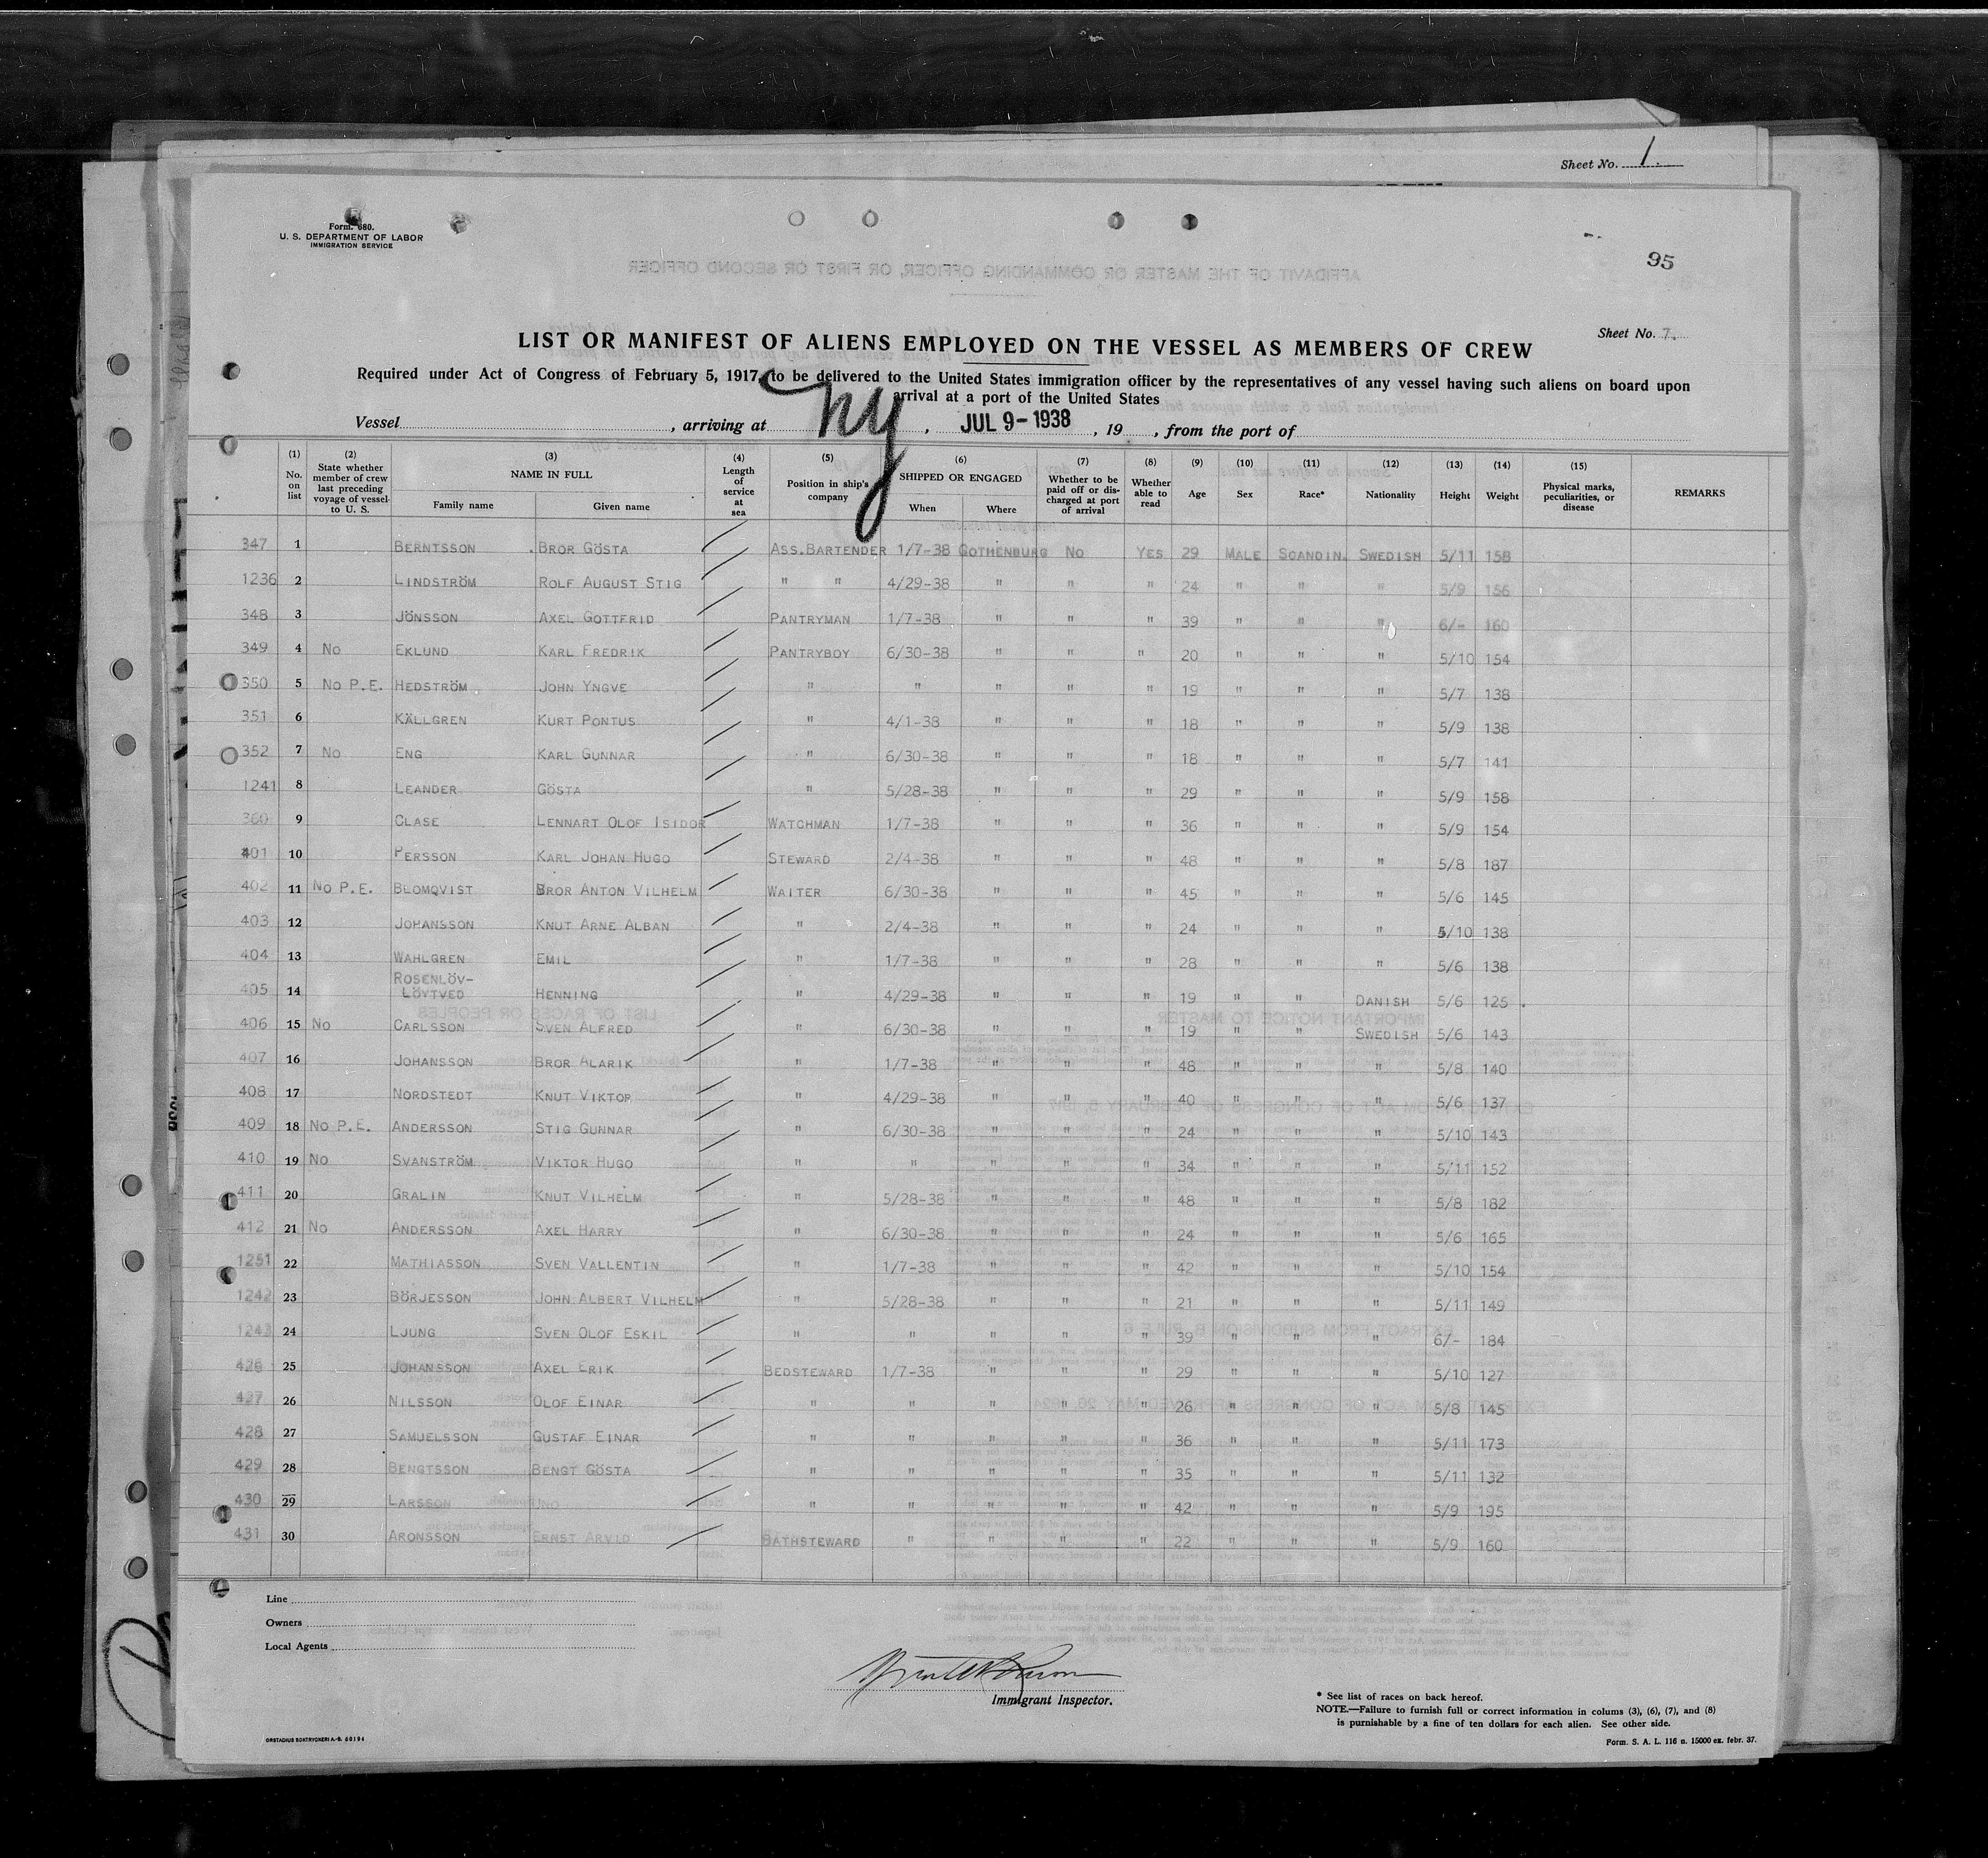 Sheet No. 1.
Form. 680.
U. S. DEPARTMENT OF LABOR
IMMIGRATION SERVICE
95
Sheet No. 7.
LIST OR MANIFEST OF ALIENS EMPLOYED ON THE VESSEL AS MEMBERS OF CREW
Required under Act of Congress of February 5, 1917, to be delivered to the United States immigration officer by the representatives of any vessel having such aliens on board upon
arrival at a port of the United States
Vessel , arriving at NY , JUL 9-1938 , 19 , from the port of
(1) No. on list (2) State whether member of crew last preceding voyage of vessel to U. S. (3) NAME IN FULL Family name Given name (4) Length of service at sea (5) Position in ship's company (6) SHIPPED OR ENGAGED When Where (7) Whether to be paid off or discharged at port of arrival (8) Whether able to read (9) Age (10) Sex (11) Race* (12) Nationality (13) Height (14) Weight (15) Physical marks, peculiarities, or disease REMARKS
347 1 BERNTSSON BROR GÖSTA ASS.BARTENDER 1/7-38 GOTHENBURG NO YES 29 MALE SCANDIN. SWEDISH 5/11 158
1236 2 LINDSTRÖM ROLF AUGUST STIG " " 4/29-38 " " " 24 " " " 5/9 156
348 3 JÖNSSON AXEL GOTTFRID PANTRYMAN 1/7-38 " " " 39 " " " 6/- 160
349 4 NO EKLUND KARL FREDRIK PANTRYBOY 6/30-38 " " " 20 " " " 5/10 154
350 5 NO P.E. HEDSTRÖM JOHN YNGVE " " " " " 19 " " " 5/7 138
351 6 KÄLLGREN KURT PONTUS " 4/1-38 " " " 18 " " " 5/9 138
352 7 NO ENG KARL GUNNAR " 6/30-38 " " " 18 " " " 5/7 141
1241 8 LEANDER GÖSTA " 5/28-38 " " " 29 " " " 5/9 158
360 9 CLASE LENNART OLOF ISIDOR WATCHMAN 1/7-38 " " " 36 " " " 5/9 154
401 10 PERSSON KARL JOHAN HUGO STEWARD 2/4-38 " " " 48 " " " 5/8 187
402 11 NO P.E. BLOMQVIST BROR ANTON VILHELM WAITER 6/30-38 " " " 45 " " " 5/6 145
403 12 JOHANSSON KNUT ARNE ALBAN " 2/4-38 " " " 24 " " " 5/10 138
404 13 WAHLGREN EMIL " 1/7-38 " " " 28 " " " 5/6 138
405 14 ROSENLÖV-
LÖYTVED HENNING " 4/29-38 " " " 19 " " DANISH 5/6 125
406 15 NO CARLSSON SVEN ALFRED " 6/30-38 " " " 19 " " SWEDISH 5/6 143
407 16 JOHANSSON BROR ALARIK " 1/7-38 " " " 48 " " " 5/8 140
408 17 NORDSTEDT KNUT VIKTOR " 4/29-38 " " " 40 " " " 5/6 137
409 18 NO P.E. ANDERSSON STIG GUNNAR " 6/30-38 " " " 24 " " " 5/10 143
410 19 NO SVANSTRÖM VIKTOR HUGO " " " " " 34 " " " 5/11 152
411 20 GRALIN KNUT VILHELM " 5/28-38 " " " 48 " " " 5/8 182
412 21 NO ANDERSSON AXEL HARRY " 6/30-38 " " " 24 " " " 5/6 165
1251 22 MATHIASSON SVEN VALLENTIN " 1/7-38 " " " 42 " " " 5/10 154
1242 23 BÖRJESSON JOHN ALBERT VILHELM " 5/28-38 " " " 21 " " " 5/11 149
1243 24 LJUNG SVEN OLOF ESKIL " " " " " 39 " " " 6/- 184
426 25 JOHANSSON AXEL ERIK BEDSTEWARD 1/7-38 " " " 29 " " " 5/10 127
427 26 NILSSON OLOF EINAR " " " " " 26 " " " 5/8 145
428 27 SAMUELSSON GUSTAF EINAR " " " " " 36 " " " 5/11 173
429 28 BENGTSSON BENGT GÖSTA " " " " " 35 " " " 5/11 132
430 29 LARSSON UNO " " " " " 42 " " " 5/9 195
431 30 ARONSSON ERNST ARVID BATHSTEWARD " " " " 22 " " " 5/9 160
Line
Owners
Local Agents
Immigrant Inspector.
* See list of races on back hereof.
NOTE.—Failure to furnish full or correct information in colums (3), (6), (7), and (8)
is punishable by a fine of ten dollars for each alien. See other side.
ORSTADIUS BOKTRYCKERI A.-B. 60194
Form. S. A. L. 116 n. 15000 ex. febr. 37.